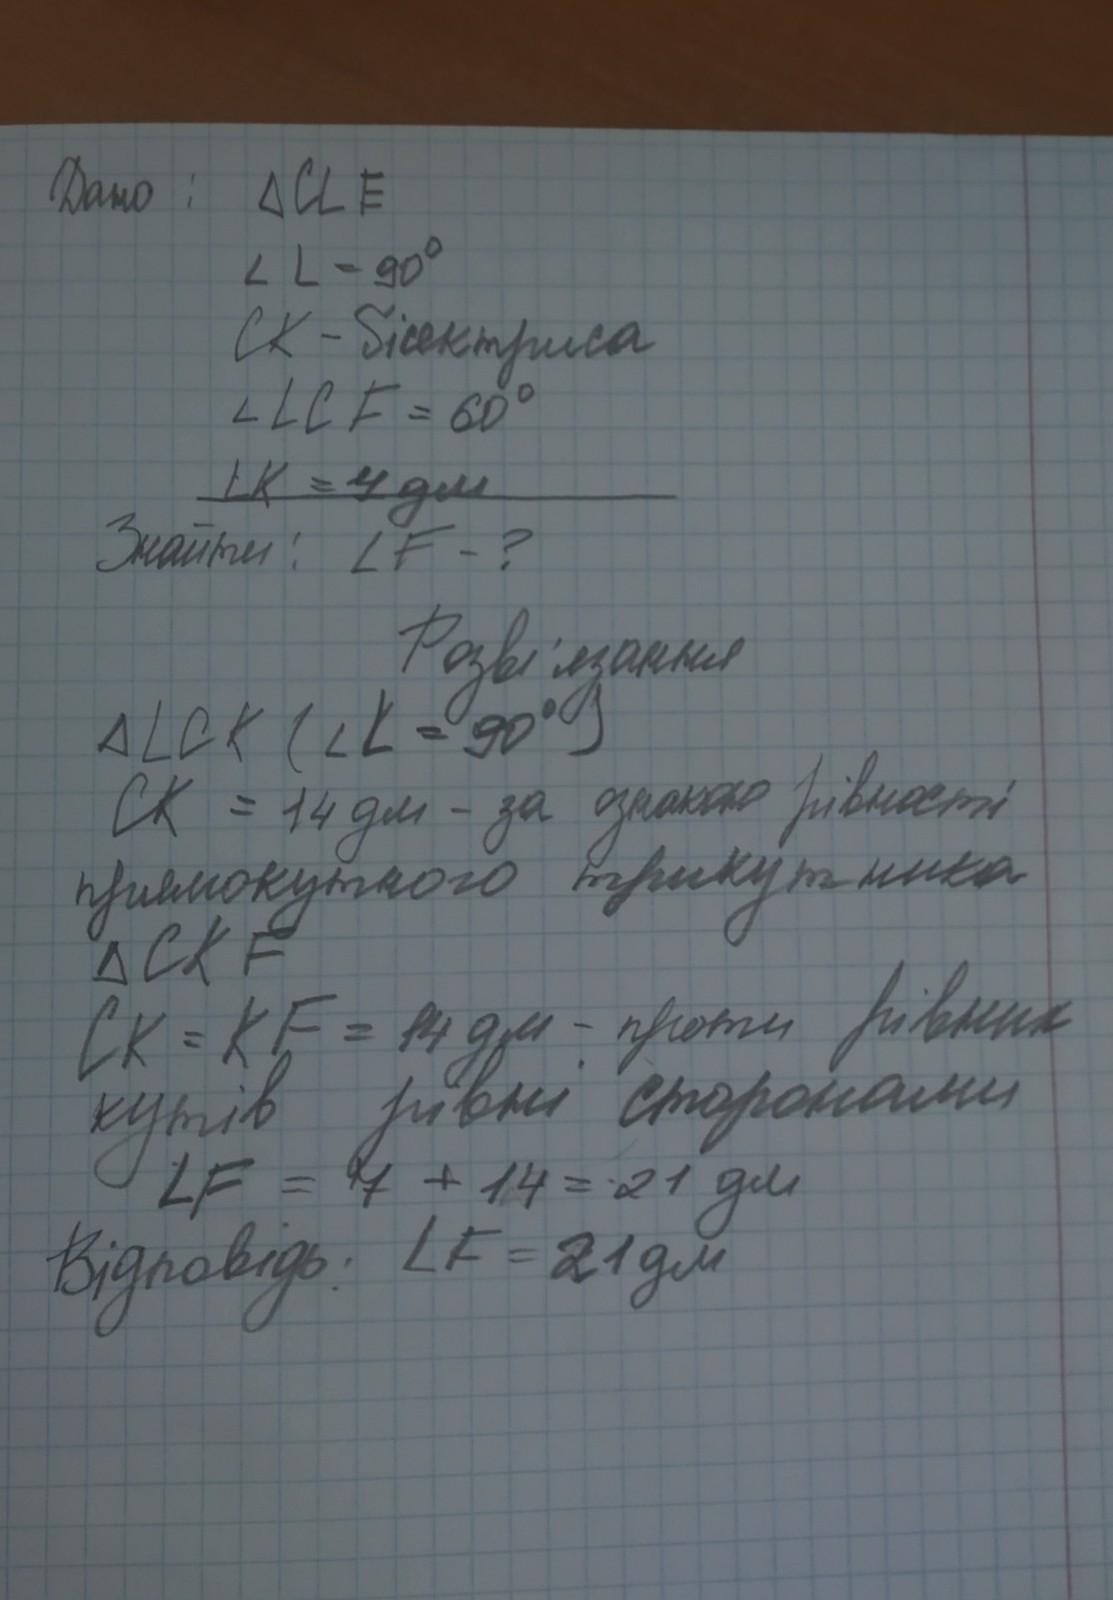 Дано: △CLE
∠L = 90°
CK - бісектриса
∠LCF = 60°
LK = 7 дм
Знайти: LF - ?
Розв'язання
△LCK (∠L = 90°)
CK = 14 дм - за ознакою рівності
прямокутного трикутника
△CKF
CK = KF = 14 дм - проти рівних
кутів рівні сторонами
LF = 7 + 14 = 21 дм
Відповідь: LF = 21 дм